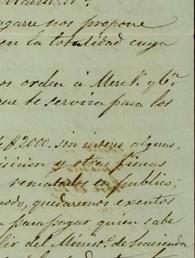 ugarre nos propone
en la totalidad cuya
os orden á Merck y Cª
que se servira para los
$2000. sin interes alguno,
sicion y otras fincas
rematarlos en publico;
modo, quedaremos exentos
para pagar quien sabe
lir del Minist. de hacienda